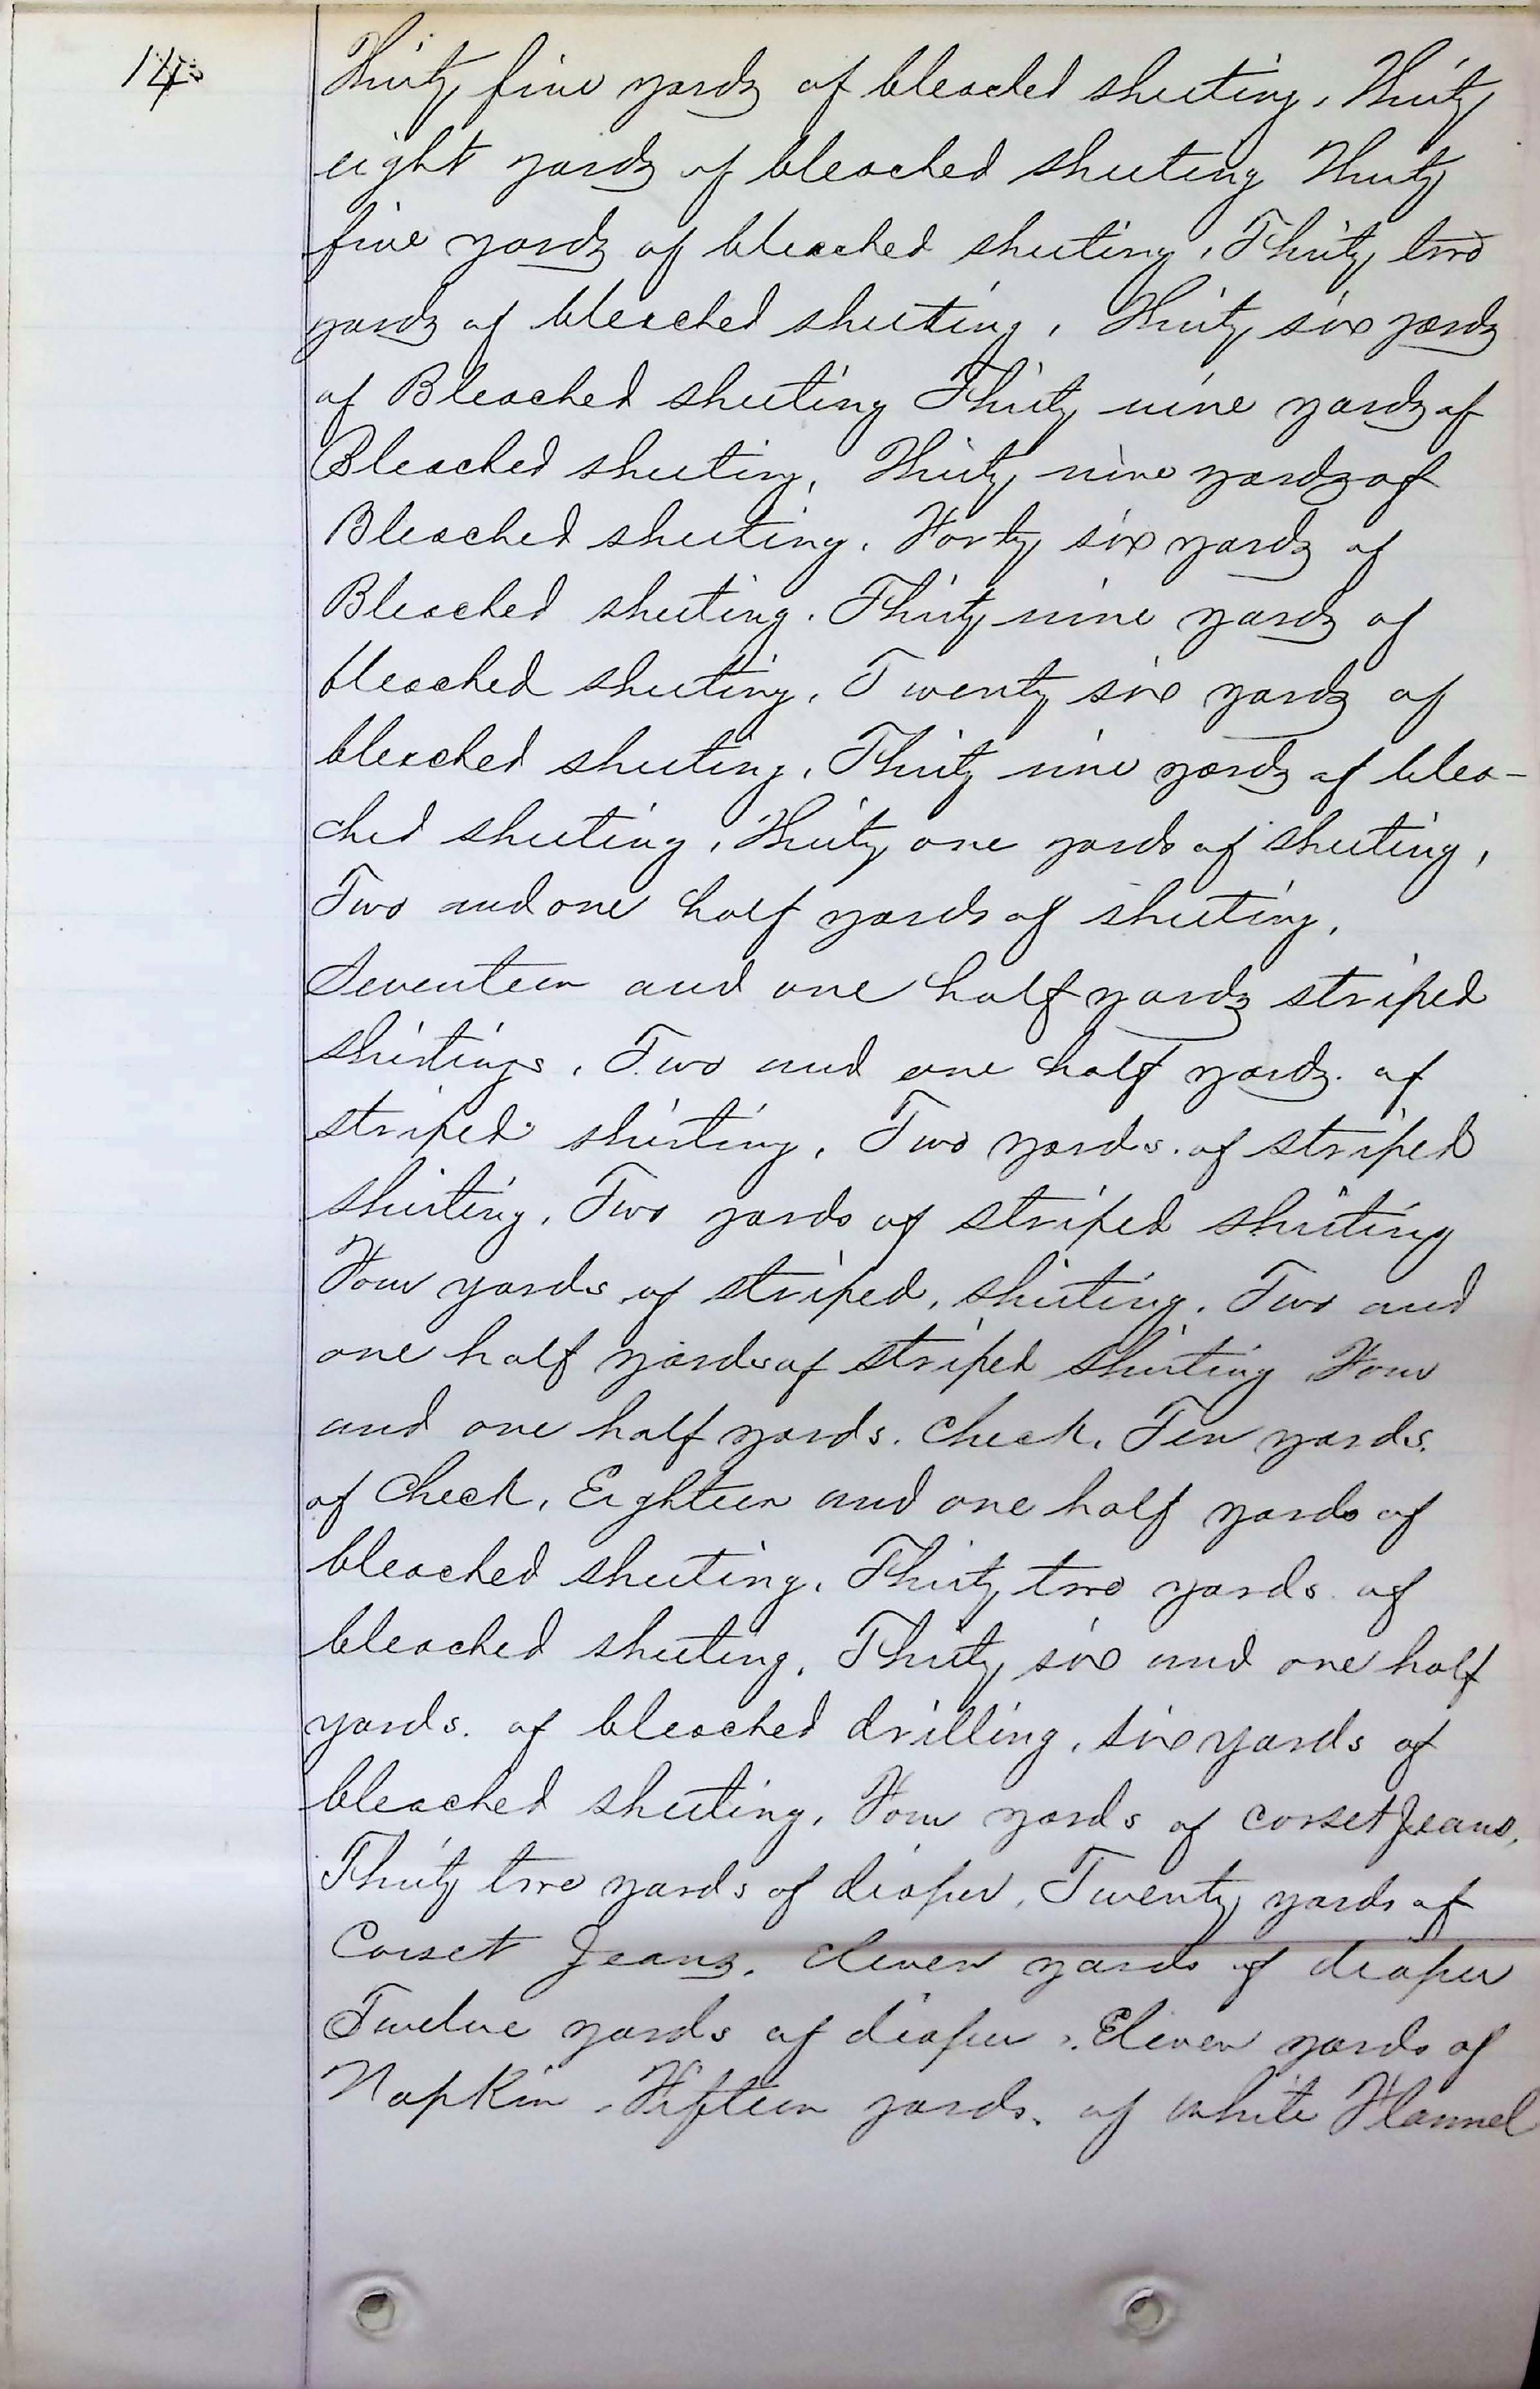 14
Thirty five yards of bleached sheeting, Thirty
eight yards of bleached sheeting Thirty
five yards of bleached sheeting, Thirty two
yards of bleached sheeting, Thirty six yards
of Bleached sheeting Thirty nine yards of
Bleached sheeting, Thirty nine yards of
Bleached sheeting, Forty six yards of
Bleached sheeting. Thirty nine yards of
bleached sheeting, Twenty six yards of
bleached sheeting, Thirty nine yards of blea-
ched sheeting, Thirty one yards of sheeting,
Two and one half yards of sheeting,
Seventeen and one half yards striped
shirtings, Two and one half yards. of
striped shirting, Two yards. of striped
shirting, Two yards of striped shirting
Four yards of striped, shirting. Two and
one half yards of striped shirting Four
and one half yards. check, Ten yards.
of Check, Eighteen and one half yards of
bleached sheeting, Thirty two yards of
bleached sheeting, Thirty six and one half
yards. of bleached drilling, six yards of
bleached sheeting, Four yards of corset Jeans,
Thirty two yards of diaper, Twenty yards of
Corset Jeans, eleven yards of diaper
Twelve yards of diaper, Eleven yards of
Napkin, Fifteen yards. of white Flannel